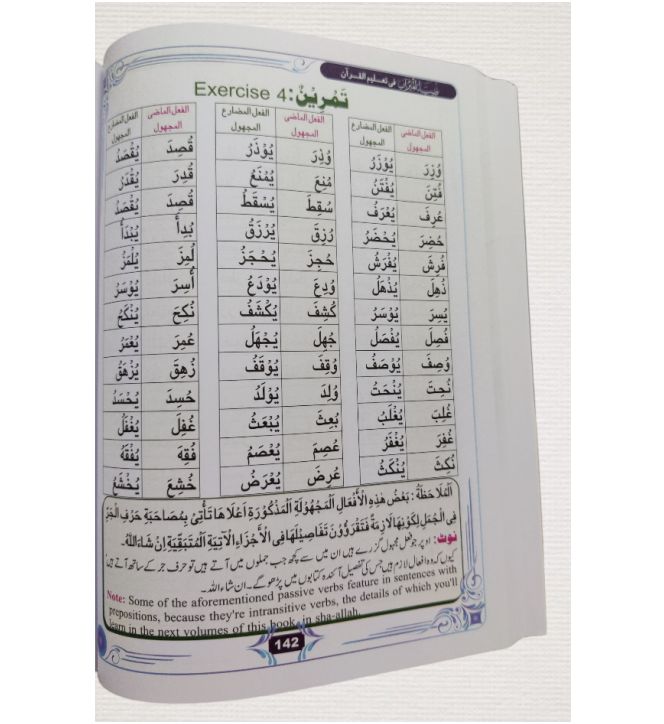 فى تعليم القرآن
تَمْرِيْنٌ: Exercise 4
الفعل الماضى المجهول الفعل المضارع المجهول
وُزِرَ يُوْزَرُ
فُتِنَ يُفْتَنُ
عُرِفَ يُعْرَفُ
حُضِرَ يُحْضَرُ
فُرِشَ يُفْرَشُ
ذُهِلَ يُذْهَلُ
يُسِرَ يُوْسَرُ
فُصِلَ يُفْصَلُ
وُصِفَ يُوْصَفُ
نُحِتَ يُنْحَتُ
غُلِبَ يُغْلَبُ
غُفِرَ يُغْفَرُ
نُكِثَ يُنْكَثُ
الفعل الماضى المجهول الفعل المضارع المجهول
وُذِرَ يُوْذَرُ
مُنِعَ يُمْنَعُ
سُقِطَ يُسْقَطُ
رُزِقَ يُرْزَقُ
حُجِزَ يُحْجَزُ
وُدِعَ يُوْدَعُ
كُشِفَ يُكْشَفُ
جُهِلَ يُجْهَلُ
وُقِفَ يُوْقَفُ
وُلِدَ يُوْلَدُ
بُعِثَ يُبْعَثُ
عُصِمَ يُعْصَمُ
عُرِضَ يُعْرَضُ
الفعل الماضى المجهول الفعل المضارع المجهول
قُصِدَ يُقْصَدُ
قُدِرَ يُقْدَرُ
قُصِدَ يُقْصَدُ
بُدِأَ يُبْدَأُ
لُمِزَ يُلْمَزُ
أُسِرَ يُوْسَرُ
نُكِحَ يُنْكَحُ
عُمِرَ يُعْمَرُ
زُهِقَ يُزْهَقُ
حُسِدَ يُحْسَدُ
غُفِلَ يُغْفَلُ
فُقِهَ يُفْقَهُ
خُشِعَ يُخْشَعُ
اَلْمُلَاحَظَةُ: بَعْضُ هٰذِهِ الْأَفْعَالِ الْمَجْهُوْلَةِ الْمَذْكُوْرَةِ أَعْلَاهَا تَأْتِيْ بِمُصَاحَبَةِ حَرْفِ الْجَرِّ
فِى الْجُمَلِ لِكَوْنِهَا لَازِمَةً فَتَقْرَؤُوْنَ تَفَاصِيْلَهَا فِى الْأَجْزَاءِ الْآتِيَةِ الْمُتَبَقِّيَةِ اِنْ شَاءَ اللّٰهُ۔
نوٹ: اوپر جو فعل مجہول گزرے ہیں ان میں سے کچھ جب جملوں میں آتے ہیں تو حرف جر کے ساتھ آتے ہیں
کیوں کہ وہ افعال لازم ہیں جس کی تفصیل آئندہ کتابوں میں پڑھو گے۔ ان شاء اللہ۔
Note: Some of the aforementioned passive verbs feature in sentences with
prepositions, because they're intransitive verbs, the details of which you'll
learn in the next volumes of this book, in sha-allah.
142